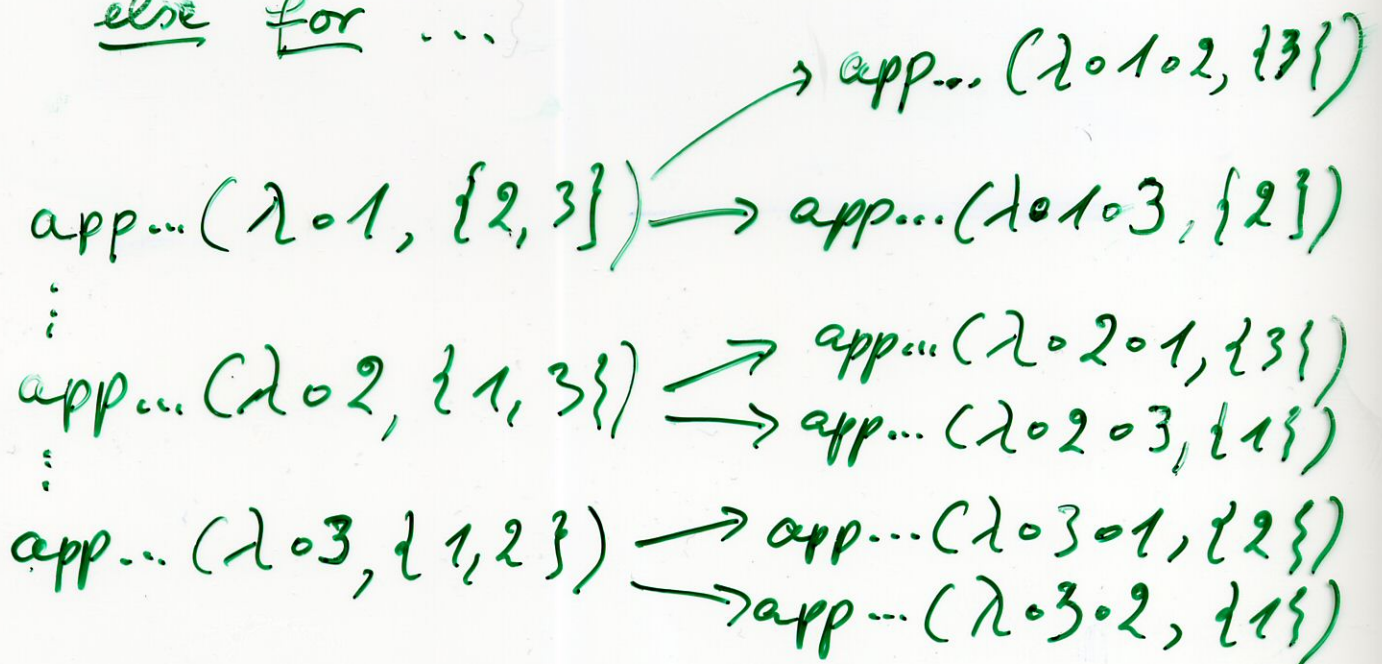 else for ...
app...(λ∘1∘2, {3})
app...(λ∘1, {2,3}) → app...(λ∘1∘3, {2})
⋮
app...(λ∘2∘1, {3})
app...(λ∘2, {1,3})
app...(λ∘2∘3, {1})
⋮
app...(λ∘3, {1,2}) → app...(λ∘3∘1, {2})
app...(λ∘3∘2, {1})